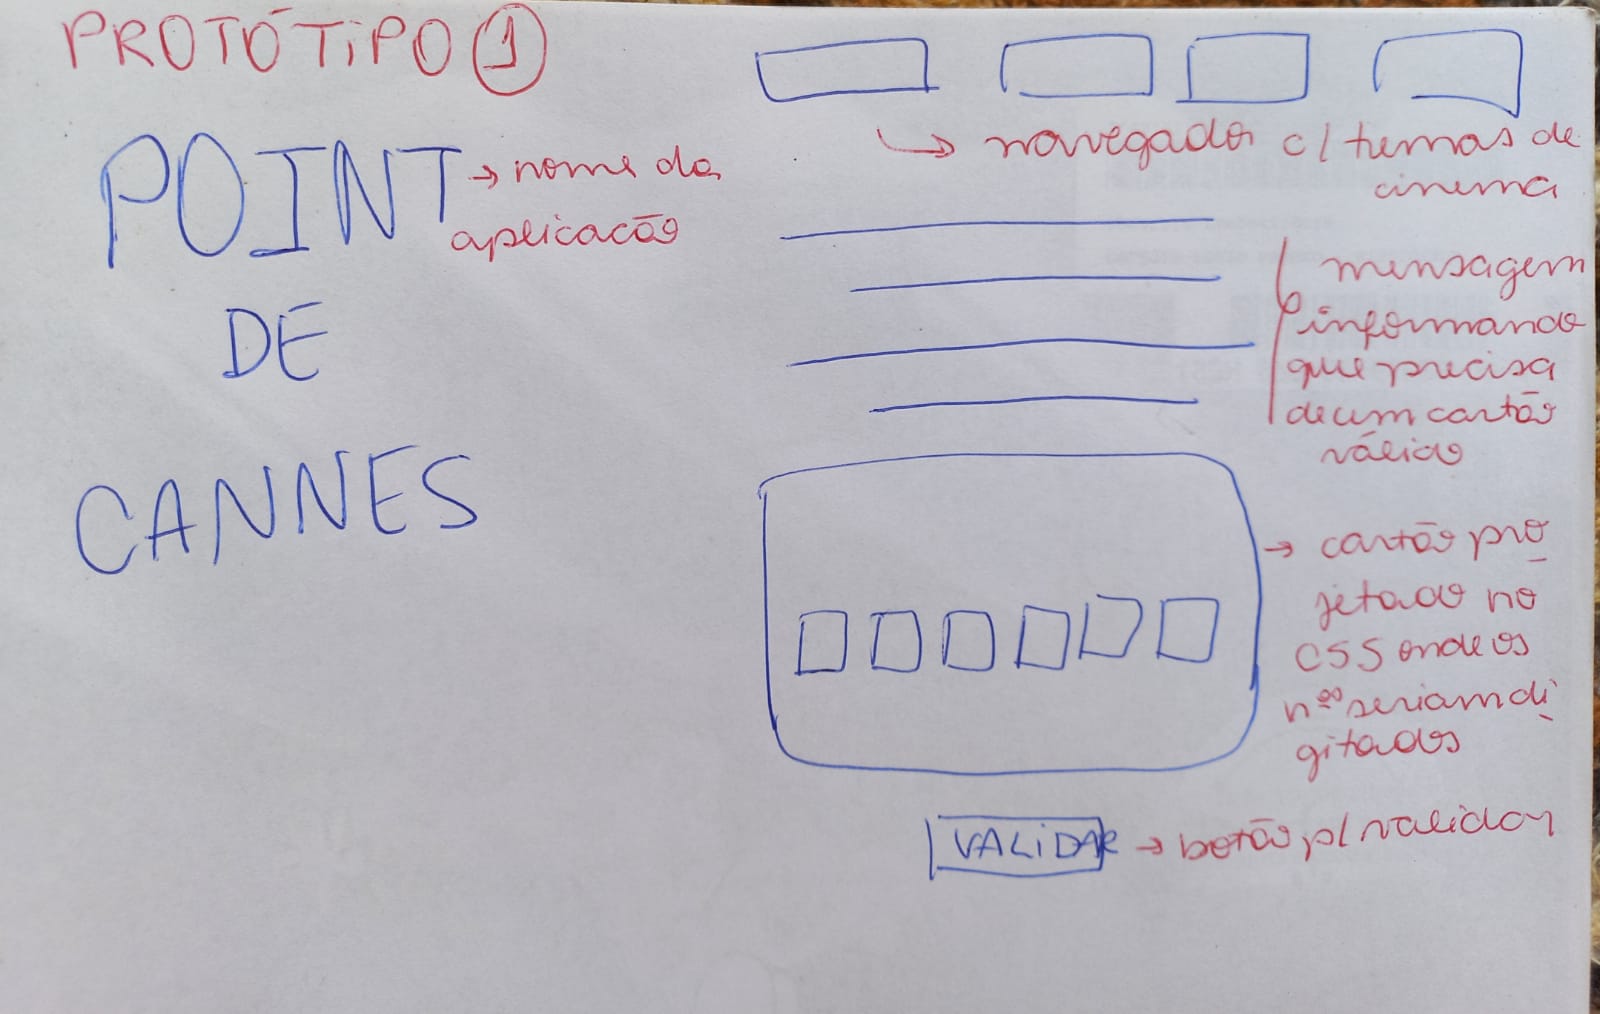 PROTÓTIPO 1
POINT → nome da
aplicacão
DE
CANNES
→ navegador c/ temas de
cinema
mensagem
informando
que precisa
de um cartão
válido
→ cartão pro
jetado no
CSS onde os
nºs seriam di
gitados
VALiDAR → botão p/ validar